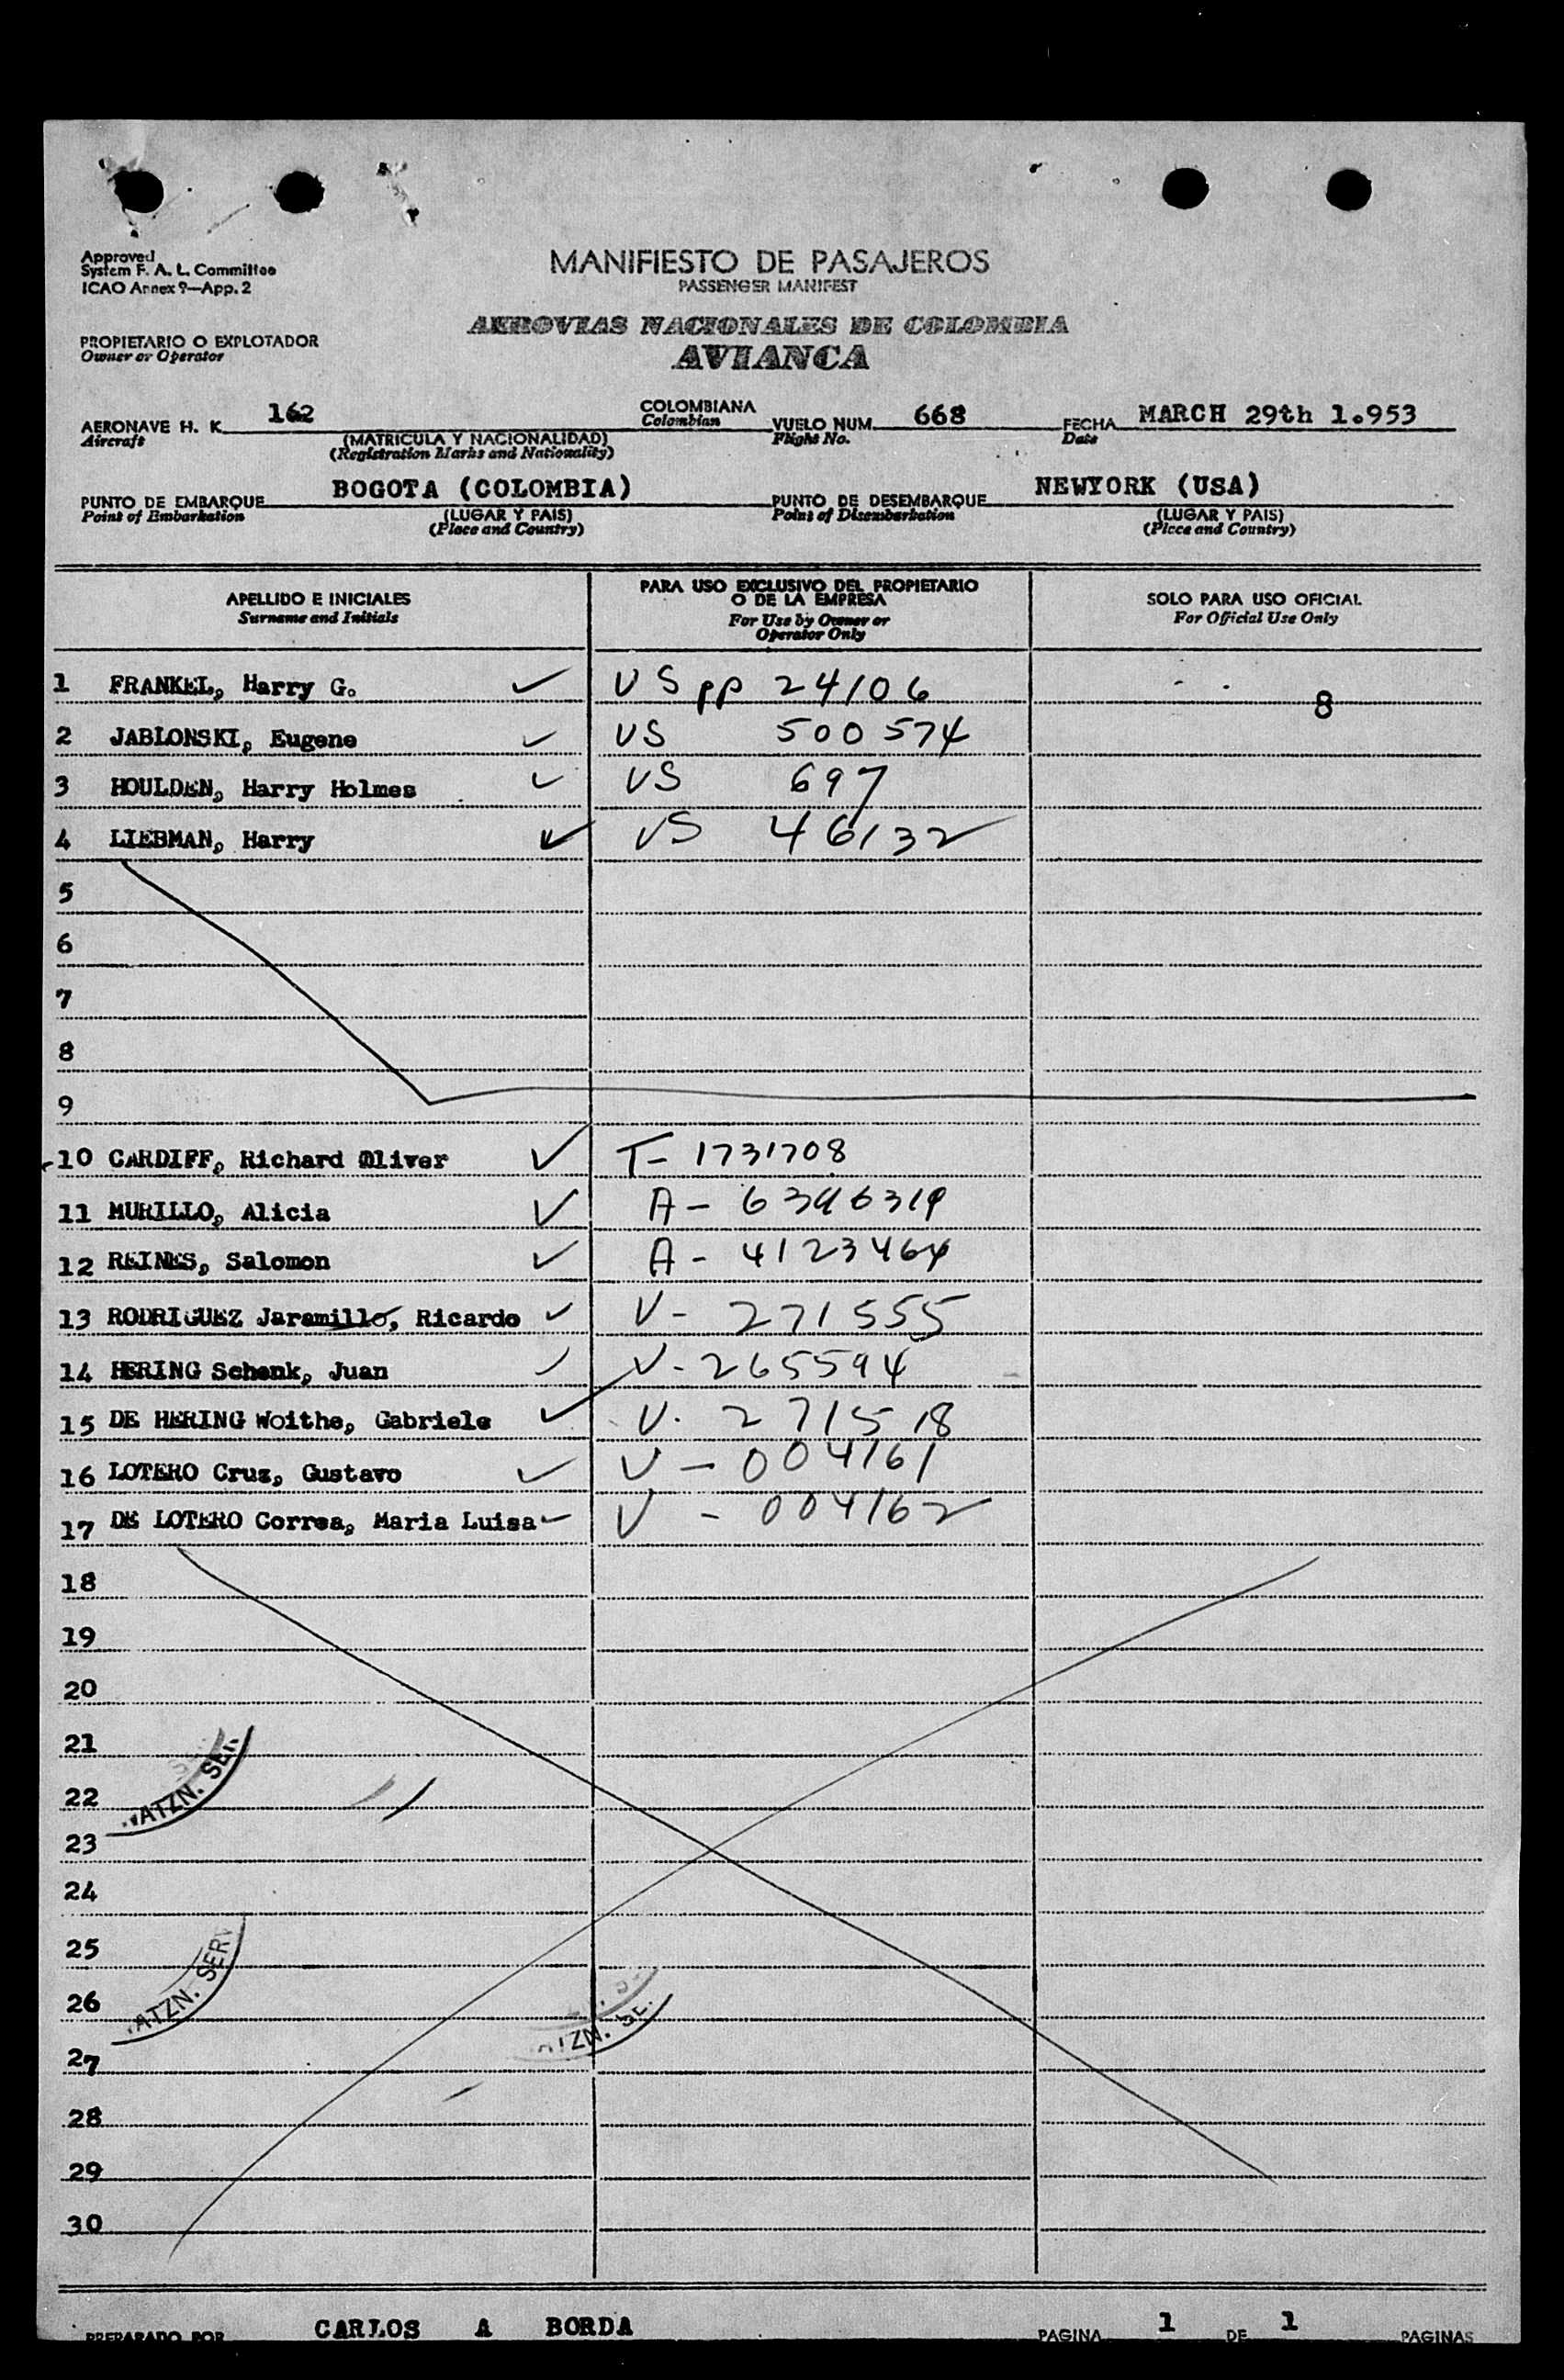 Approved
System F. A. L. Committee
ICAO Annex 9—App. 2
MANIFIESTO DE PASAJEROS
PASSENGER MANIFEST
AEROVIAS NACIONALES DE COLOMBIA
AVIANCA
PROPIETARIO O EXPLOTADOR
Owner or Operator
AERONAVE H. K. 162 COLOMBIANA VUELO NUM. 668 FECHA MARCH 29th 1.953
Aircraft (MATRICULA Y NACIONALIDAD) Colombian Flight No. Date
(Registration Marks and Nationality)
PUNTO DE EMBARQUE BOGOTA (COLOMBIA) PUNTO DE DESEMBARQUE NEWYORK (USA)
Point of Embarkation (LUGAR Y PAIS) Point of Disembarkation (LUGAR Y PAIS)
(Place and Country) (Place and Country)
APELLIDO E INICIALES
Surname and Initials
PARA USO EXCLUSIVO DEL PROPIETARIO
O DE LA EMPRESA
For Use by Owner or
Operator Only
SOLO PARA USO OFICIAL
For Official Use Only
1 FRANKEL, Harry G. ✓ US pp 24106 8
2 JABLONSKI, Eugene ✓ US 500574
3 HOULDEN, Harry Holmes ✓ US 697
4 LIEBMAN, Harry ✓ US 46132
5
6
7
8
9
10 CARDIFF, Richard Oliver ✓ T- 1731708
11 MURILLO, Alicia ✓ A- 6396319
12 REINES, Salomon ✓ A- 4123464
13 RODRIGUEZ Jaramillo, Ricardo ✓ V- 271555
14 HERING Schenk, Juan ✓ V- 265594
15 DE HERING Woithe, Gabriele ✓ V. 271518
16 LOTERO Cruz, Gustavo ✓ V - 004161
17 DE LOTERO Correa, Maria Luisa ✓ V - 004162
18
19
20
21
22
ATZN. SER
23
24
25
26
ATZN. SERV
TZN. SE
27
28
29
30
PREPARADO POR CARLOS A BORDA PAGINA 1 DE 1 PAGINAS